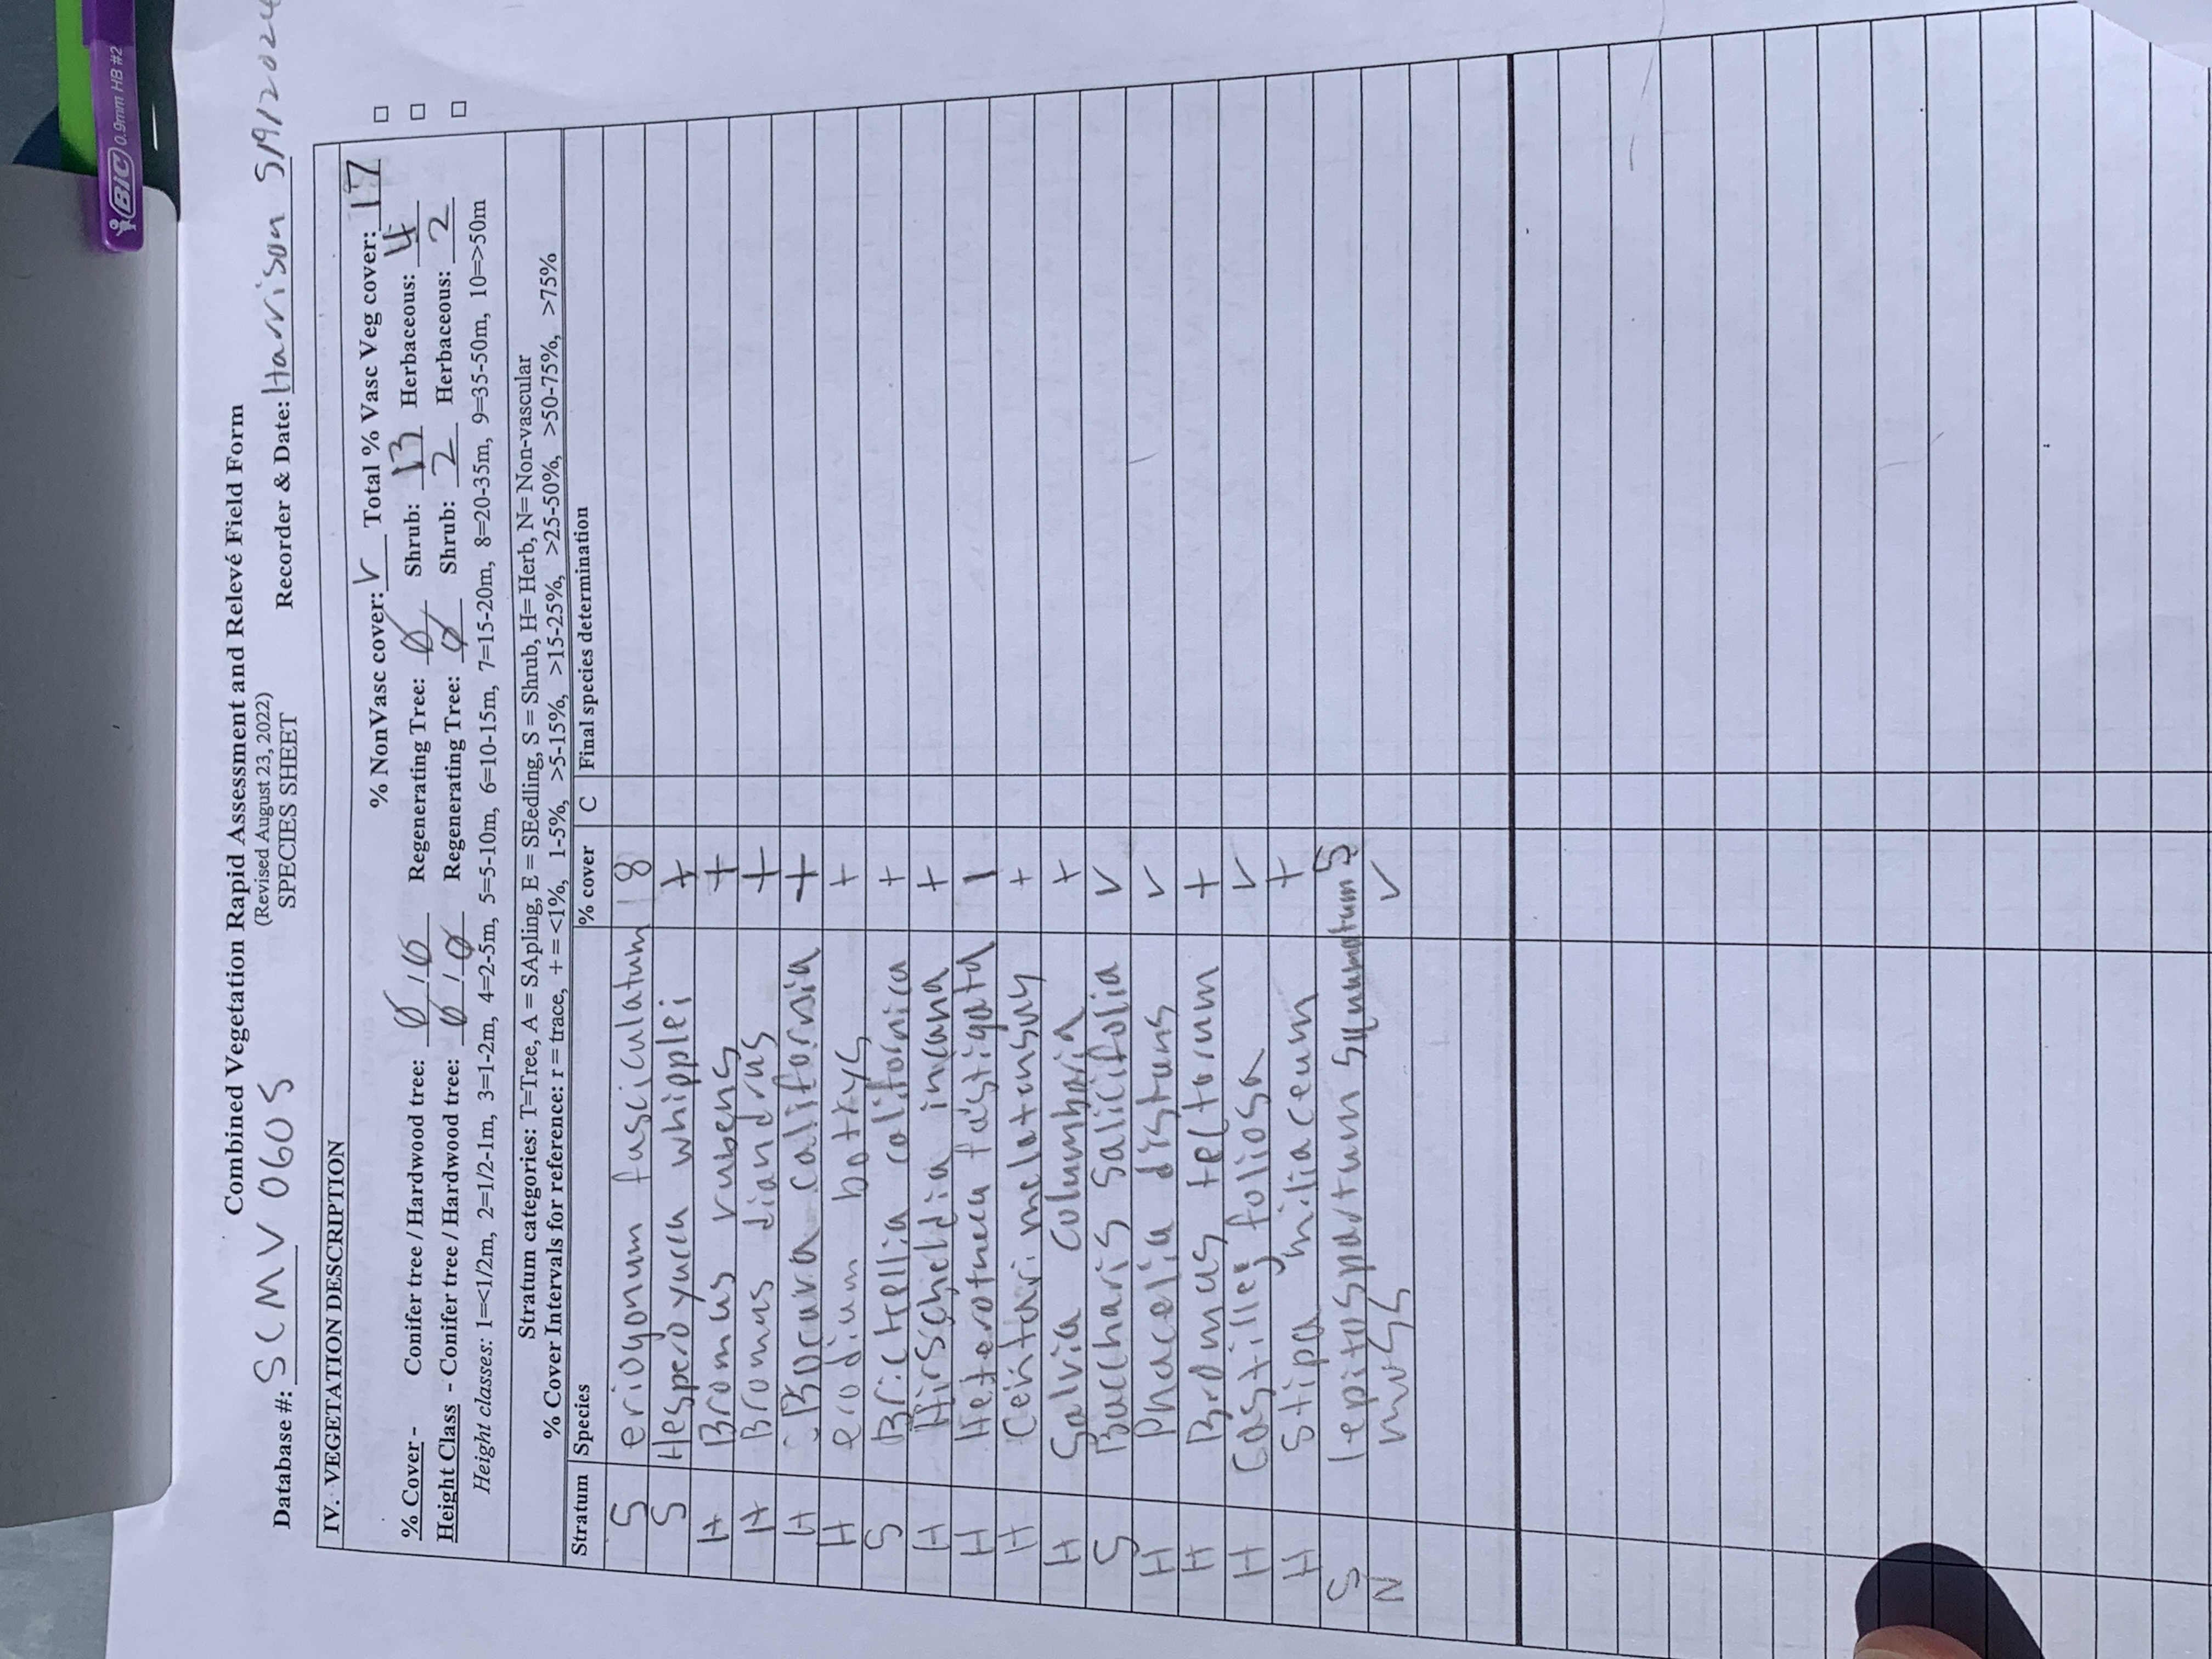 BIC 0.9mm HB #2
Combined Vegetation Rapid Assessment and Relevé Field Form
(Revised August 23, 2022)
SPECIES SHEET
Database #: SCMV0605 Recorder & Date: Harrison 5/9/2024
IV. VEGETATION DESCRIPTION
% NonVasc cover: r Total % Vasc Veg cover: 17
% Cover - Conifer tree / Hardwood tree: 0 / 0 Regenerating Tree: 0 Shrub: 13 Herbaceous: 4
Height Class - Conifer tree / Hardwood tree: 0 / 0 Regenerating Tree: 0 Shrub: 2 Herbaceous: 2
Height classes: 1=<1/2m, 2=1/2-1m, 3=1-2m, 4=2-5m, 5=5-10m, 6=10-15m, 7=15-20m, 8=20-35m, 9=35-50m, 10=>50m
Stratum categories: T=Tree, A = SApling, E = SEedling, S = Shrub, H= Herb, N= Non-vascular
% Cover Intervals for reference: r = trace, + = <1%, 1-5%, >5-15%, >15-25%, >25-50%, >50-75%, >75%
Stratum Species % cover C Final species determination
S eriogonum fasciculatum 8
S Hesperoyucca whipplei +
H Bromus rubens +
H Bromus diandrus +
H +
H erodium botrys +
S Brickellia californica +
H Hirschfeldia incana +
H Heterotheca fastigata 1
H melatensus +
H Salvia Columbaria +
S Baccharis Salicifolia r
H Phacelia distans r
H Bromus tectorum +
H Castilleja foliosa r
H Stipa miliaceum +
S lepitospartum squamatum 5
N moss r